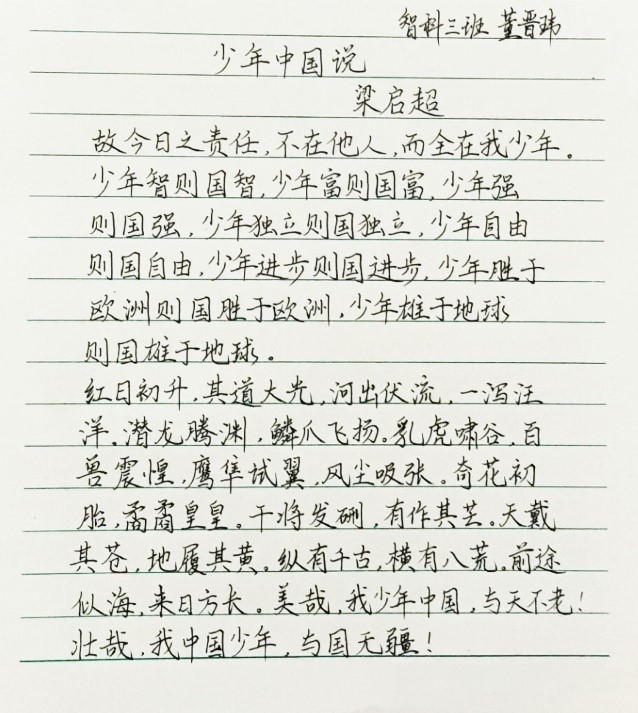 智科三班 董晋玮
少年中国说
梁启超
故今日之责任,不在他人,而全在我少年。
少年智则国智,少年富则国富,少年强
则国强,少年独立则国独立,少年自由
则国自由,少年进步则国进步,少年胜于
欧洲则国胜于欧洲,少年雄于地球
则国雄于地球。
红日初升,其道大光,河出伏流,一泻汪
洋。潜龙腾渊,鳞爪飞扬。乳虎啸谷,百
兽震惶,鹰隼试翼,风尘吸张。奇花初
胎,矞矞皇皇。干将发硎,有作其芒。天戴
其苍,地履其黄。纵有千古,横有八荒。前途
似海,来日方长。美哉,我少年中国,与天不老!
壮哉,我中国少年,与国无疆!